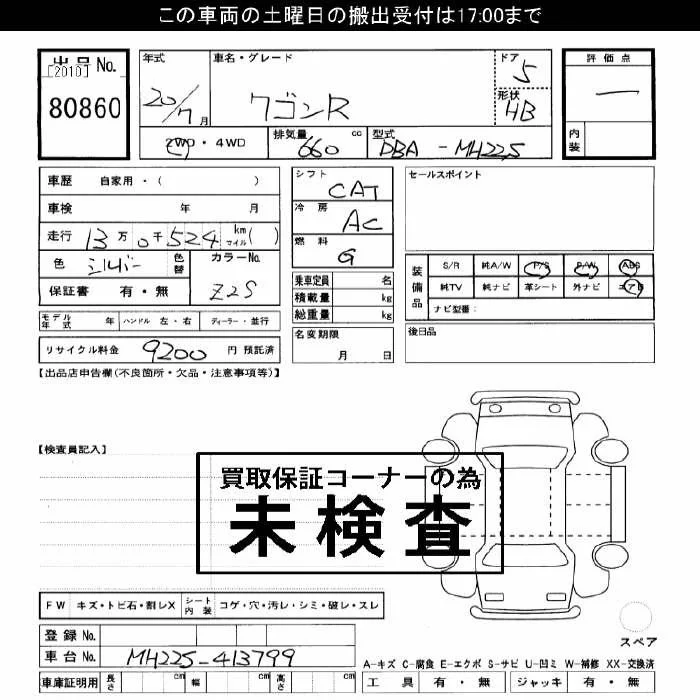 この車両の土曜日の搬出受付は17:00まで
出品 No.
[2010]
80860
年式
20/7月
車名・グレード
ワゴンR
ドア
5
形状
HB
評価点
一
内装
2WD・4WD
排気量 660 cc
型式 DBA-MH22S
車歴 自家用・( )
車検 年 月
走行 13万0千524 km マイル( )
色 シルバー 色替
カラーNo. Z2S
保証書 有・無
モデル年式 年 ハンドル 左・右 ディーラー・並行
リサイクル料金 9200 円 預託済
シフト CAT
冷房 AC
燃料 G
乗車定員 名
積載量 kg
総重量 kg
名変期限
月 日
セールスポイント
装備品
S/R 純A/W P/S P/W ABS
純TV 純ナビ 革シート 外ナビ エアB
ナビ型番:
後日品
【出品店申告欄(不良箇所・欠品・注意事項等)】
【検査員記入】
買取保証コーナーの為
未検査
FW キズ・トビ石・割レX シート内装 コゲ・穴・汚レ・シミ・破レ・スレ
登録 No.
車台 No. MH22S-413799
車庫証明用 長さ cm 幅 cm 高さ cm
スペア
A-キズ C-腐食 E-エクボ S-サビ U-凹ミ W-補修 XX-交換済
工具 有・無 ジャッキ 有・無